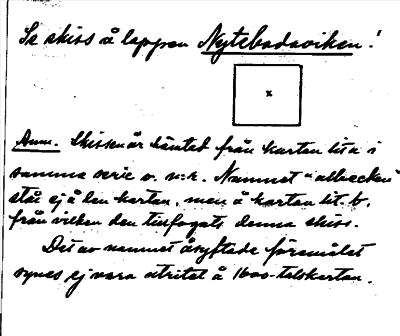 Se skiss å lappen Nytebodaviken!
x
Anm. Skissen är hämtad från kartan lit a i
samma serie o. n:r. Namnet "-allbacken"
står ej å den kartan, men å kartan lit. b,
från vilken den tillfogats denna skiss.
Det av namnet åsyftade föremålet
synes ej vara utritat å 1600-talskartan.